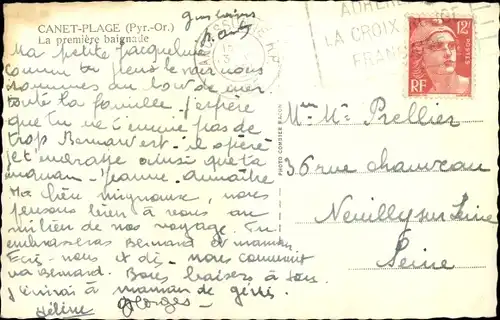 CANET-PLAGE (Pyr.-Or.)
La première baignade
Ma petite Jacqueline
comme tu peux le voir nous
sommes au bord de mer
toute la famille. J'espère
que tu ne t'ennuie pas de
trop Bernard est-il opéré
je t'embrasse ainsi que ta
maman - Jeanne-Annaïke
Ma bien mignoune, nous
pensons bien à vous au
milieu de nos voyage. Tu
embrasseras Bernard et maman
Ecris-nous et dis-nous comment
va Bernard. Bons baisers à tous
J'écrirai à maman de
Hélène Georges
PHOTO COMBIER MACON
ADHÉRE
LA CROIX ROUGE
FRANÇ
12F
POSTES
RF
Mme Mr Prellier
36 rue chauveau
Neuilly sur Seine
Seine